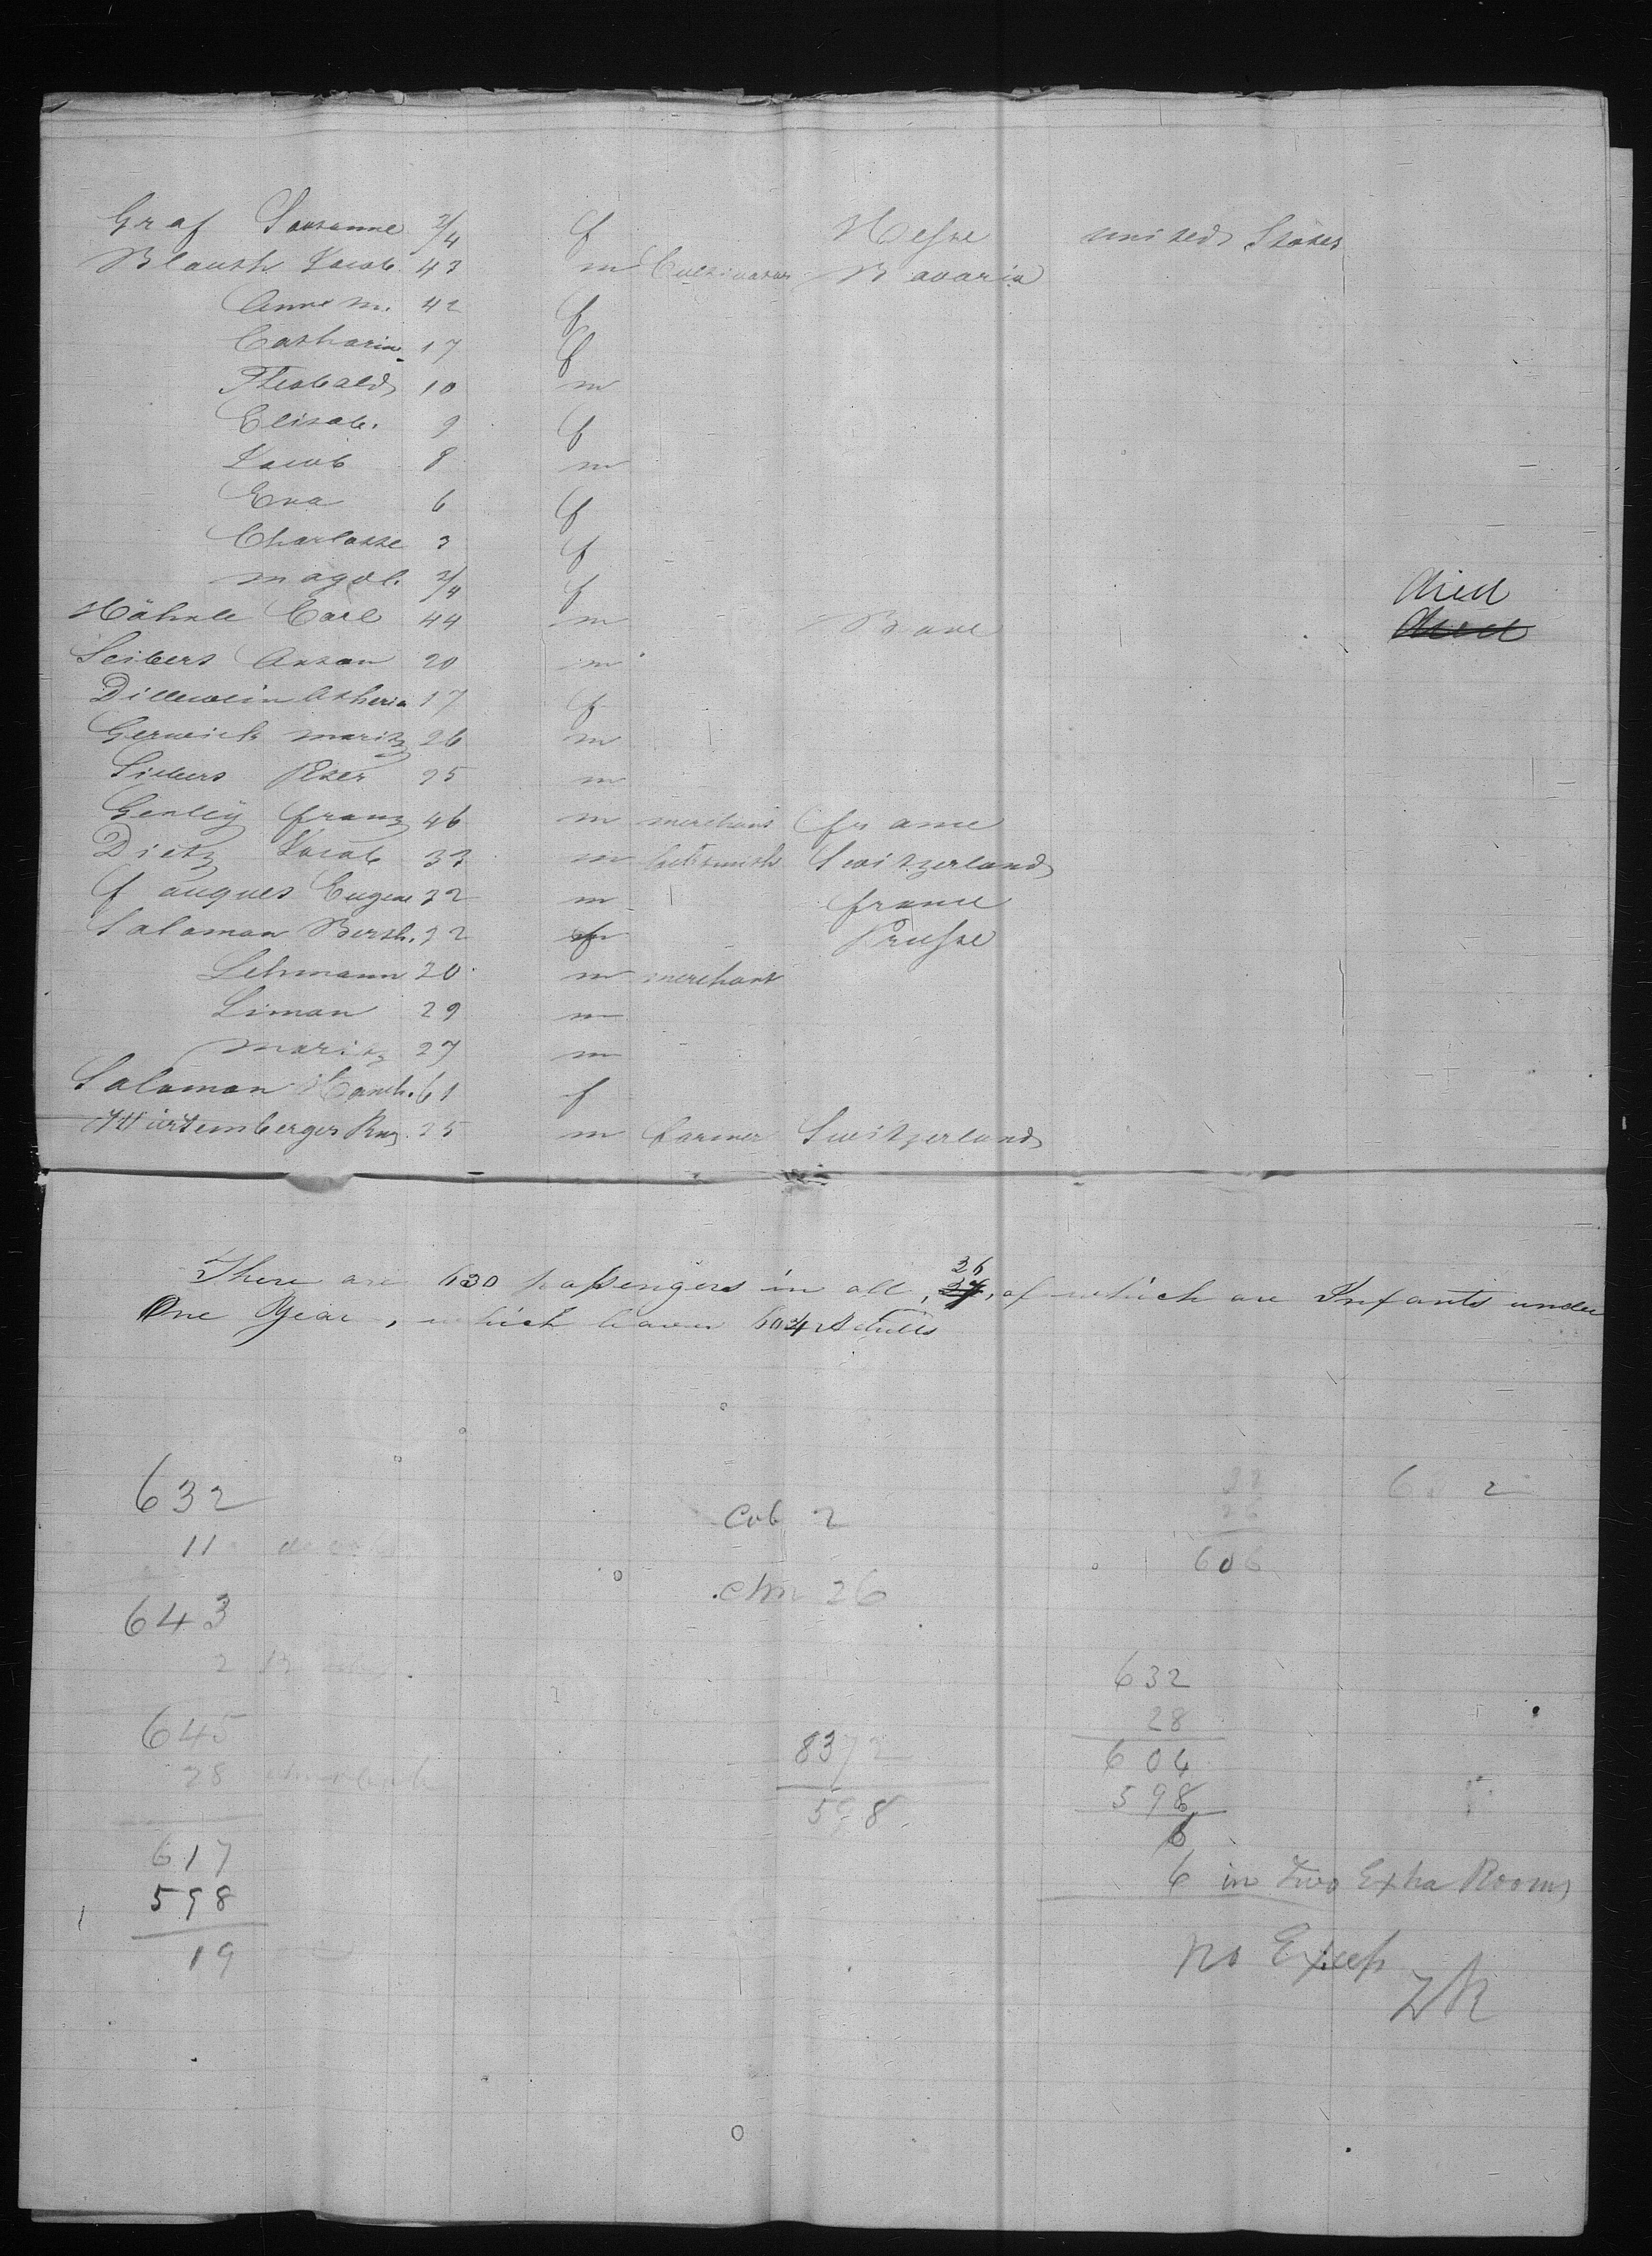 Graf Sousanne 2/4 f Hesse united States
Blauth Jacob 43 m Cultivator Bavaria
Anne m. 42 f
Catharin 17 f
Theobald 10 m
Elisab. 9 f
Jacob 8 m
Eva 6 f
Charlotte 3 f
magdl. 2/4 f died
Höhnle Carl 44 m Bade died
Seibert Anton 20 m
Dillewein Atheria 17 f
Gerweick moritz 26 m
Peter 25 m
franz 46 m merchant france
Dietz Jacob 33 m Switzerland
fauques Eugene 32 m france
Salomon Berth. 32 f Prusse
Lehmann 20 m merchant
Simon 29 m
moritz 27 m
Salomon 61 f
Würtemberger 25 m farmer Switzerland
26
There are 630 passengers in all, 27, of which are Infants under
One Year, which leaves 604 Adults
632
11
643
2
645
28
617
598
19
Cab 2
chn 26
8372
598
32
26
606
632
28
604
598
6
6 in two Extra Rooms
no Excess